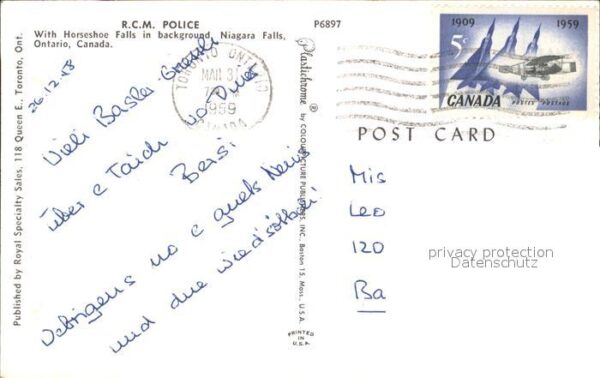 R.C.M. POLICE
With Horseshoe Falls in background, Niagara Falls,
Ontario, Canada.
P6897
Published by Royal Specialty Sales, 118 Queen E., Toronto, Ont.
26.12.58
Vieli Basler
über e
Bersi
Uebrigens no e guets
und due
Plastichrome ® by COLOURPICTURE PUBLISHERS, INC., Boston 15, Mass., U.S.A.
PRINTED
IN
U.S.A.
TORONTO ONTARIO
MAR 3
1959
CANADA
1909 1959
5c
CANADA
POSTES POSTAGE
POST CARD
Mis
Leo
120
Ba
privacy protection
Datenschutz